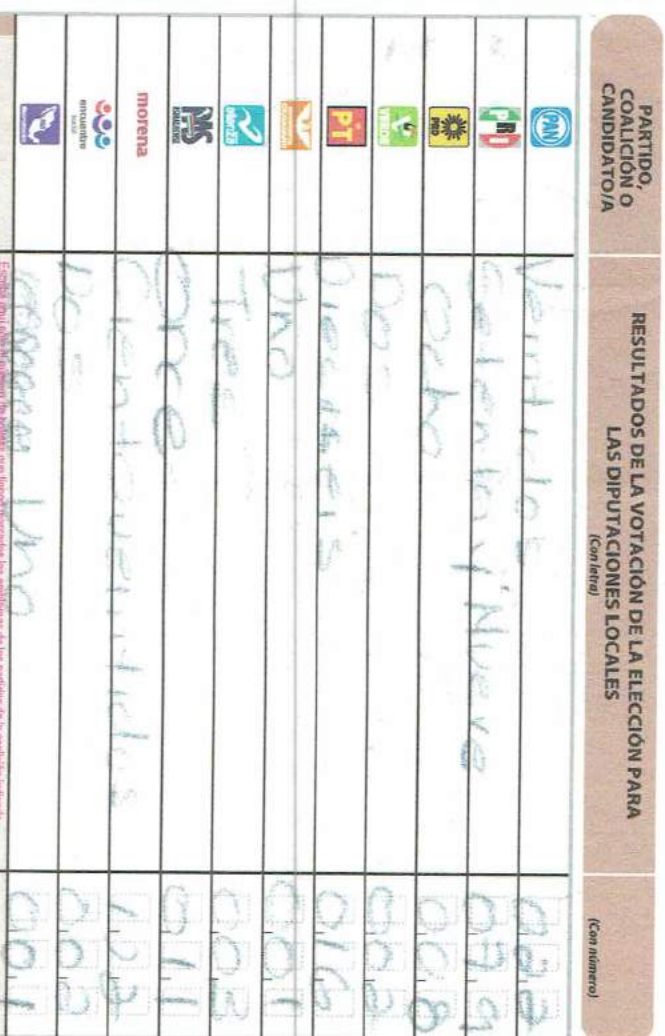 PARTIDO,
COALICIÓN O
CANDIDATO/A
RESULTADOS DE LA VOTACIÓN DE LA ELECCIÓN PARA
LAS DIPUTACIONES LOCALES
(Con letra)
(Con número)
PAN Veintidos 022
PRI Setenta y Nueve 079
PRD Ocho 008
VERDE Dos 002
PT Dieciseis 016
Uno 001
Tres 003
Once 011
morena Cientoveintidos 122
encuentro social Dos 002
Uno 001